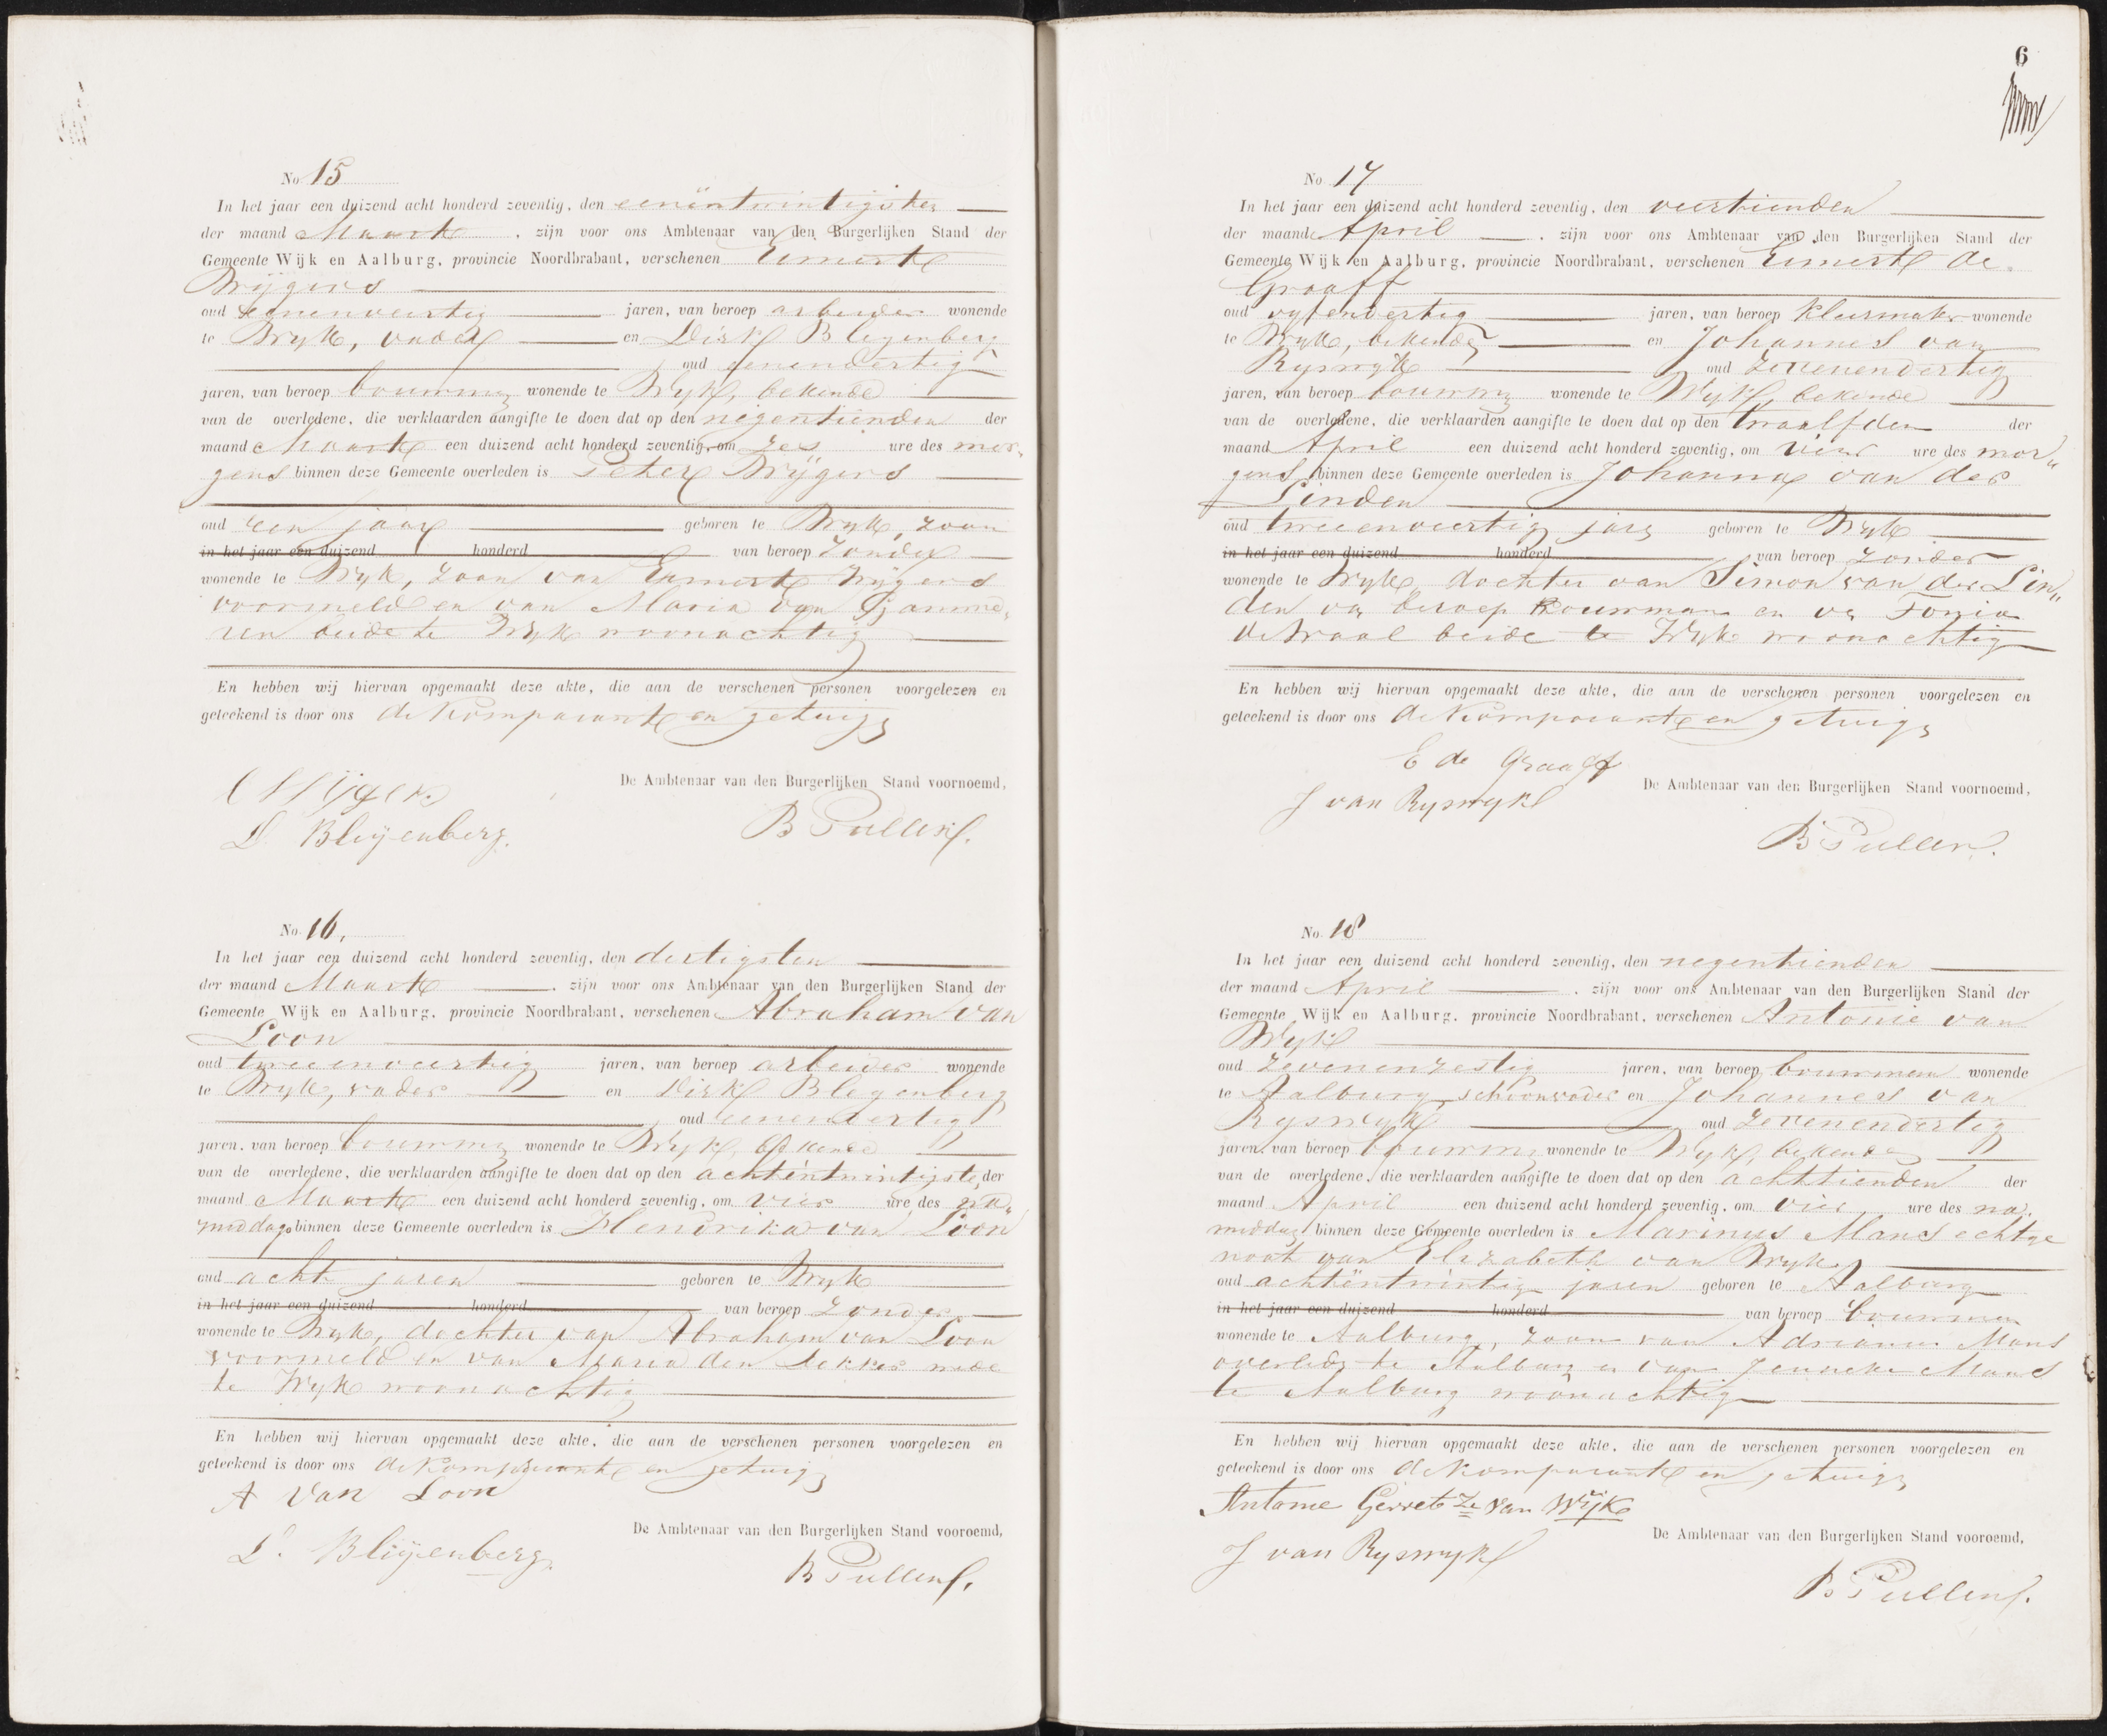 No 15
In het jaar een duizend acht honderd zeventig, den eenëntwintigsten
der maand Maart, zijn voor ons Ambtenaar van den Burgerlijken Stand der
Gemeente Wijk en Aalburg, provincie Noordbrabant, verschenen Emmert
Wijgers
oud eenenveertig jaren, van beroep arbeider wonende
te Wyk, vader en Dirk Bleyenberg
oud eenendertig
jaren, van beroep bouwmn wonende te Wyk, bekende
van de overledene, die verklaarden aangifte te doen dat op den negentienden der
maand Maart een duizend acht honderd zeventig, om zes ure des mor„
gens binnen deze Gemeente overleden is Peter Wijgers
oud een jaar geboren te Wyk, zoon
in het jaar een duizend honderd van beroep zonder
wonende te Wyk, zoon van Emmert Wijgers
voormeld en van Maria van
beide te Wyk woonachtig
En hebben wij hiervan opgemaakt deze akte, die aan de verschenen personen voorgelezen en
geteekend is door ons de Komparant en getuige
De Ambtenaar van den Burgerlijken Stand voornoemd,
Wijgers
D Bleijenberg.
B Pullens.
No 16.
In het jaar een duizend acht honderd zeventig, den dertigsten
der maand Maart, zijn voor ons Ambtenaar van den Burgerlijken Stand der
Gemeente Wijk en Aalburg, provincie Noordbrabant, verschenen Abraham van
Loon
oud tweeenveertig jaren, van beroep arbeider wonende
te Wyk, vader en Dirk Bleyenberg
oud eenendertig
jaren, van beroep bouwmn wonende te Wyk, bekende
van de overledene, die verklaarden aangifte te doen dat op den achtentwintigste der
maand Maart een duizend acht honderd zeventig, om vier ure des na„
middags binnen deze Gemeente overleden is Hendrika van Loon
oud acht jaren geboren te Wyk
in het jaar een duizend honderd van beroep zonder
wonende te Wyk, dochter van Abraham van Loon
voormeld en van Maria den Dekker mede
te Wyk woonachtig
En hebben wij hiervan opgemaakt deze akte, die aan de verschenen personen voorgelezen en
geteekend is door ons de Komparant en getuige
A van Loon
De Ambtenaar van den Burgerlijken Stand vooroemd,
D. Bleijenberg
B Pullens.
6
No 17
In het jaar een duizend acht honderd zeventig, den veertienden
der maand April, zijn voor ons Ambtenaar van den Burgerlijken Stand der
Gemeente Wijk en Aalburg, provincie Noordbrabant, verschenen Emmert de
Graaff
oud vyfendertig jaren, van beroep kleermaker wonende
te Wyk, bekende en Johannes van
Ryswyk oud zevenendertig
jaren, van beroep bouwmn wonende te Wyk, bekende
van de overledene, die verklaarden aangifte te doen dat op den twaalfden der
maand April een duizend acht honderd zeventig, om vier ure des mor„
gens binnen deze Gemeente overleden is Johanna van der
Linden
oud tweeenveertig jare geboren te Wyk
in het jaar een duizend honderd van beroep zonder
wonende te Wyk, dochter van Simon van der Lin„
den van beroep Bouwman en van Tonia
de Waal beide te Wyk woonachtig
En hebben wij hiervan opgemaakt deze akte, die aan de verschenen personen voorgelezen en
geteekend is door ons de Komparant en getuige
E de Graaff
De Ambtenaar van den Burgerlijken Stand voornoemd,
J van Ryswyk
B Pullens.
No 18
In het jaar een duizend acht honderd zeventig, den negentienden
der maand April, zijn voor ons Ambtenaar van den Burgerlijken Stand der
Gemeente Wijk en Aalburg, provincie Noordbrabant, verschenen Antonie van
Wyk
oud zevenenzestig jaren, van beroep bouwman wonende
te Aalburg schoonvader en Johannes van
Ryswyk oud zevenendertig
jaren, van beroep bouwmn wonende te Wyk, bekende
van de overledene, die verklaarden aangifte te doen dat op den achttienden der
maand April een duizend acht honderd zeventig, om vier ure des na„
middag binnen deze Gemeente overleden is Marinus Mans echtge
noot van Elizabeth van Wyk
oud achtëntwintig jaren geboren te Aalburg
in het jaar een duizend honderd van beroep bouwman
wonende te Aalburg, zoon van Adrianus Mans
overleden te Aalburg en van Jenneke Mans
te Aalburg woonachtig
En hebben wij hiervan opgemaakt deze akte, die aan de verschenen personen voorgelezen en
geteekend is door ons de Komparant en getuige
Antonie Gerrets Ze van Wijk
De Ambtenaar van den Burgerlijken Stand vooroemd,
J van Ryswyk
B Pullens.